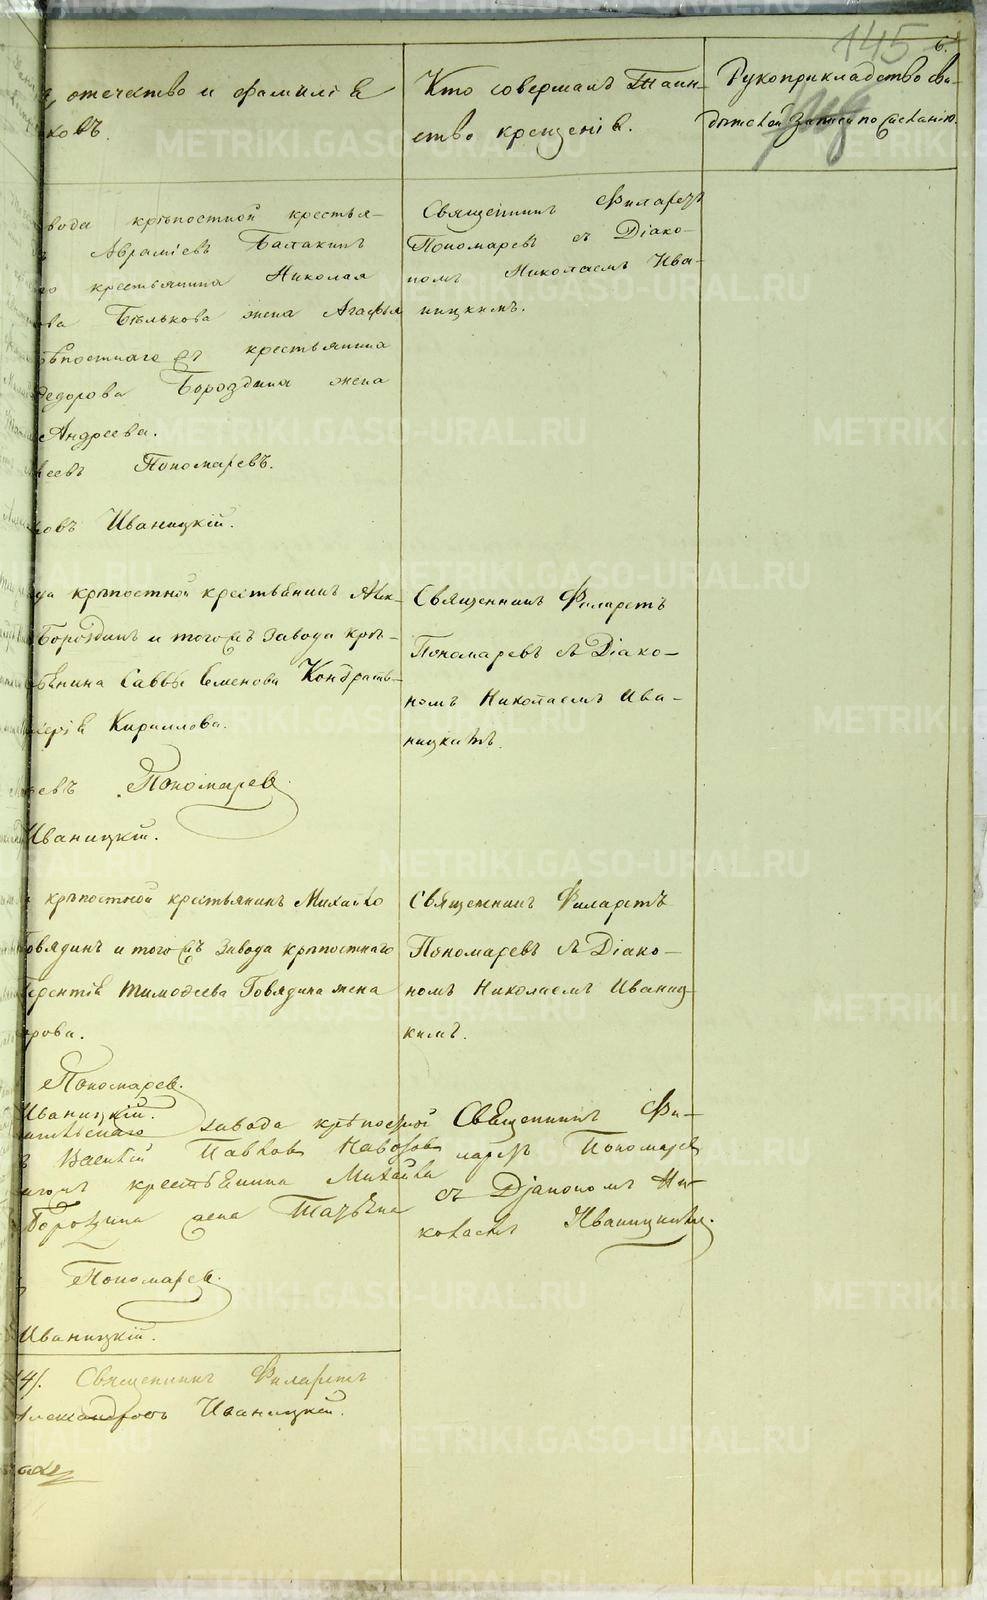 145
6.
отечество и фамилія
ковъ.
Кто совершалъ Таин-
ство крещенія.
Рукоприкладство сви-
дѣтелей записи по желанію.
вода крѣпостной крестья-
Авраміевъ Балакинъ
крестьянина Николая
ова Бѣлькова жена Агафья
ѣпостнаго крестьянина
Ѳедорова Бороздина жена
Андреева.
еевъ Пономаревъ.
ковъ Иваницкій.
Священникъ Филаретъ
Пономаревъ съ Діако-
номъ Николаемъ Ива-
ницкимъ.
крѣпостной крестьянинъ Алек-
Бороздинъ и тогожъ завода крѣ-
янина Саввы Семенова Кондрать-
Кириллова.
еевъ Пономаревъ
Иваницкій.
Священникъ Филаретъ
Пономаревъ съ Діако-
номъ Николаемъ Ива-
ницкимъ.
крѣпостной крестьянинъ Михайло
Говядинъ и тогожъ завода крѣпостнаго
Терентія Тимофеева Говядина жена
рова.
Пономаревъ.
Иваницкій.
Священникъ Филаретъ
Пономаревъ съ Діако-
номъ Николаемъ Иваниц-
кимъ.
завода крѣпостной
Василій Павловъ
крестьянина Михайла
Бороздина жена Татьяна
Пономаревъ.
Иваницкій.
Священникъ Фи-
ларетъ Пономаревъ
съ Діакономъ Ни-
колаемъ Иваницкимъ.
14). Священникъ Филаретъ
Александровъ Иваницкій.
METRIKI.GASO-URAL.RU